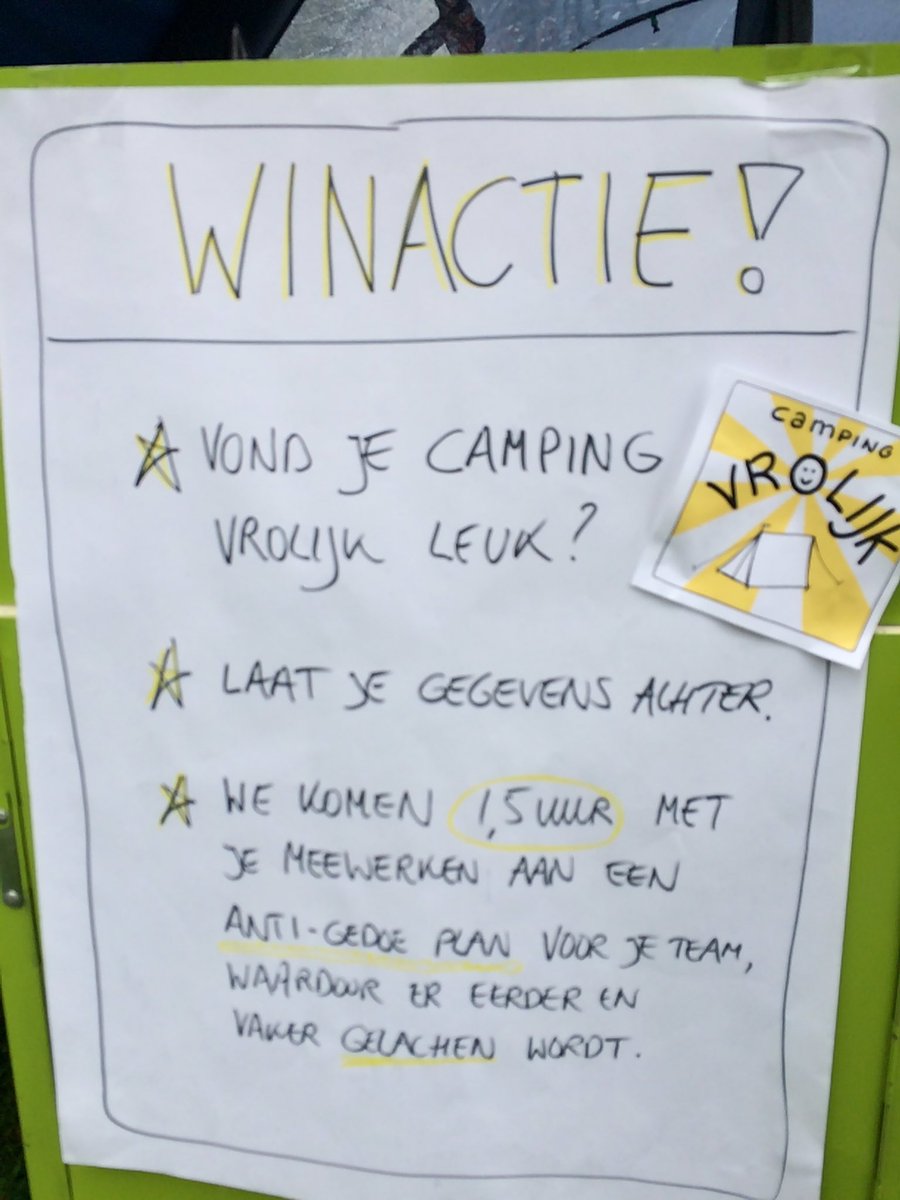 WINACTIE!
VOND JE CAMPING
VROLIJK LEUK?
CAMPING
VROLIJK
LAAT JE GEGEVENS ACHTER.
WE KOMEN 1,5 UUR MET
JE MEEWERKEN AAN EEN
ANTI-GEDOE PLAN VOOR JE TEAM,
WAARDOOR ER EERDER EN
VAKER GELACHEN WORDT.